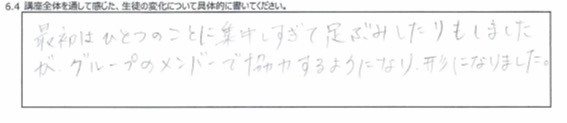 6.4 講座全体を通して感じた、生徒の変化について具体的に書いてください。
最初はひとつのことに集中しすぎて足ぶみしたりもしました
が、グループのメンバーで協力するようになり、形になりました。